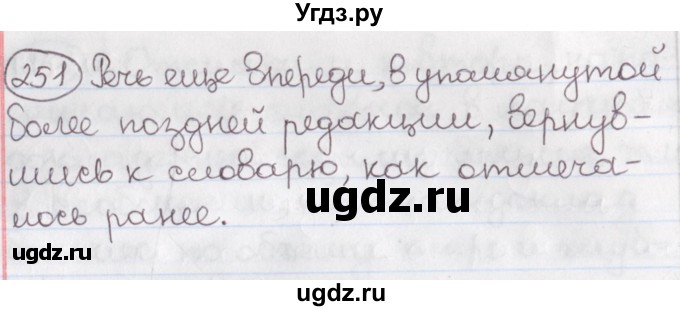 Угдз.ру
251 Речь еще впереди, в упомянутой
более поздней редакции, вернув-
шись к словарю, как отмеча-
лось ранее.
gdz.ru
ugdz.ru
ugdz.ru
ugdz.ru